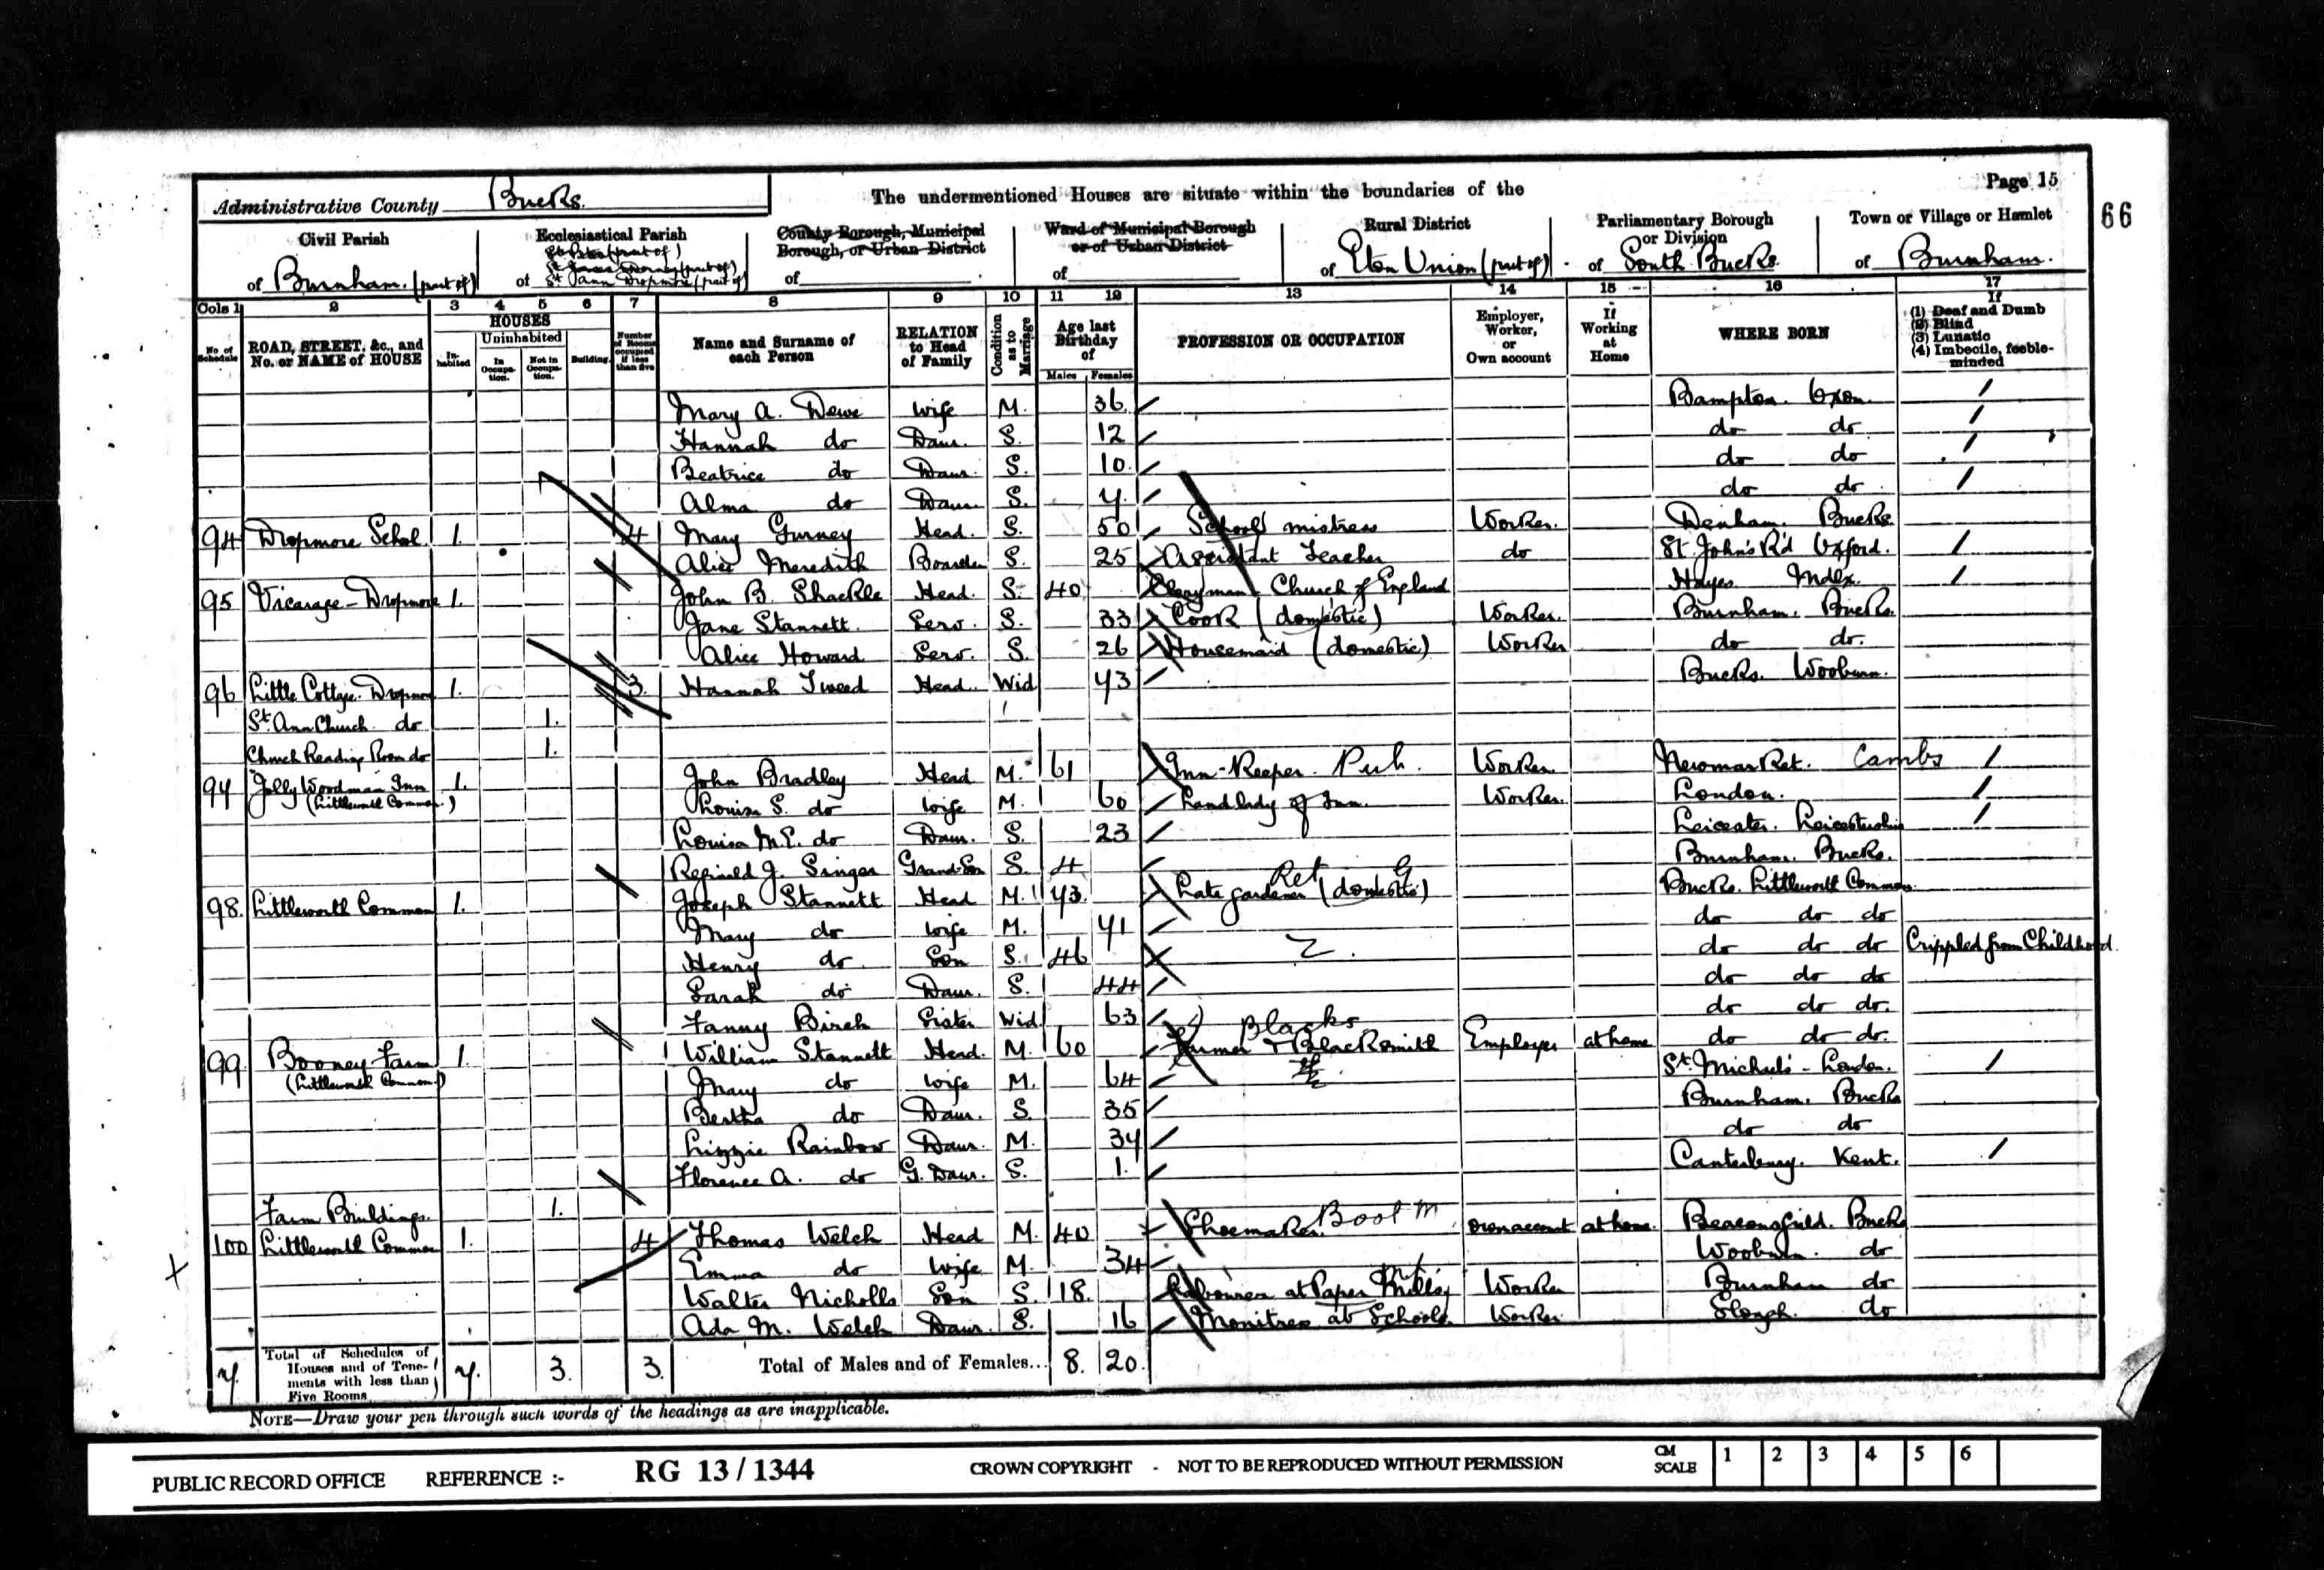 Page 15
66
Administrative County Bucks.
The undermentioned Houses are situate within the boundaries of the
Civil Parish of Burnham. (part of)
Ecclesiastical Parish of St Peter (part of) St James Dorney (part of) St Ann Dropmore (part of)
County Borough, Municipal Borough, or Urban District of
Ward of Municipal Borough or of Urban District of
Rural District of Eton Union (part of)
Parliamentary Borough or Division of South Bucks.
Town or Village or Hamlet of Burnham.
Cols 1 2 3 4 5 6 7 8 9 10 11 12 13 14 15 16 17
No. of Schedule
ROAD, STREET, &c., and No. or NAME of HOUSE
HOUSES
Inhabited
Uninhabited
In Occupation.
Not in Occupation.
Building.
Number of Rooms occupied if less than five
Name and Surname of each Person
RELATION to Head of Family
Condition as to Marriage
Age last Birthday of
Males Females
PROFESSION OR OCCUPATION
Employer, Worker, or Own account
If Working at Home
WHERE BORN
If (1) Deaf and Dumb (2) Blind (3) Lunatic (4) Imbecile, feeble-minded
Mary A. Dewe Wife M. 36 Bampton. Oxon.
Hannah do Daur. S. 12 do do
Beatrice do Daur. S. 10 do do
Alma do Daur. S. 7 do do
94 Dropmore School 1. 4 Mary Gurney Head. S. 50 School mistress Worker. Denham. Bucks
Alice Meredith Boarder S. 25 Assistant Teacher do St John's Rd Oxford.
95 Vicarage - Dropmore 1. John B. Shackle Head. S. 40 Clergyman Church of England Hayes Mdlx.
Jane Stannett. Serv. S. 33 Cook (domestic) Worker. Burnham. Bucks.
Alice Howard Serv. S. 26 Housemaid (domestic) Worker do do.
96 Little Cottage. Dropmore 1. 3. Hannah Tweed Head. Wid 73 Bucks. Wooburn.
St. Ann Church do 1.
Church Reading Room do 1.
97 Jolly Woodman Inn 1. John Bradley Head M. 61 Inn-Keeper. Pub. Worker Newmarket. Cambs
(Littleworth Common.) Louisa S. do Wife M. 60 Landlady of Inn. Worker. London.
Louisa M.E. do Daur. S. 23 Leicester. Leicestershire
Reginald J. Singer Grand-Son S. 4 Burnham. Bucks.
Ret G
98. Littleworth Common 1. Joseph Stannett Head M. 73. Late gardener (domestic) Bucks. Littleworth Common.
Mary do Wife M. 71 do do do
Henry do Son S. 46 do do do Crippled from Childhood.
Sarah do Daur. S. 44 do do do
Fanny Birch Sister Wid 63 do do do.
Blacks
99 Booney Farm 1. William Stannett Head. M. 60 Farmer & Blacksmith Employer at home do do do.
(Littleworth Common) Mary do Wife M. 64 St. Michael's - London.
Bertha do Daur. S. 35 Burnham. Bucks
Lizzie Rainbow Daur. M. 34 do do
Florence A. do G. Daur. S. 1. Canterbury. Kent.
Farm Buildings. 1.
100 Littleworth Common 1. 4 Thomas Welch Head M. 40 Shoemaker. Boot M own account at home. Beaconsfield. Bucks
Emma do Wife M. 34 Wooburn. do
Walter Nicholls Son S. 18. Labourer at Paper Mills Worker Burnham do
Ada M. Welch Daur. S. 16 Monitress at Schools. Worker. Slough. do
7. Total of Schedules of Houses and of Tenements with less than Five Rooms 7. 3. 3. Total of Males and of Females... 8. 20.
NOTE—Draw your pen through such words of the headings as are inapplicable.
PUBLIC RECORD OFFICE REFERENCE :- RG 13 / 1344 CROWN COPYRIGHT - NOT TO BE REPRODUCED WITHOUT PERMISSION CM SCALE 1 2 3 4 5 6